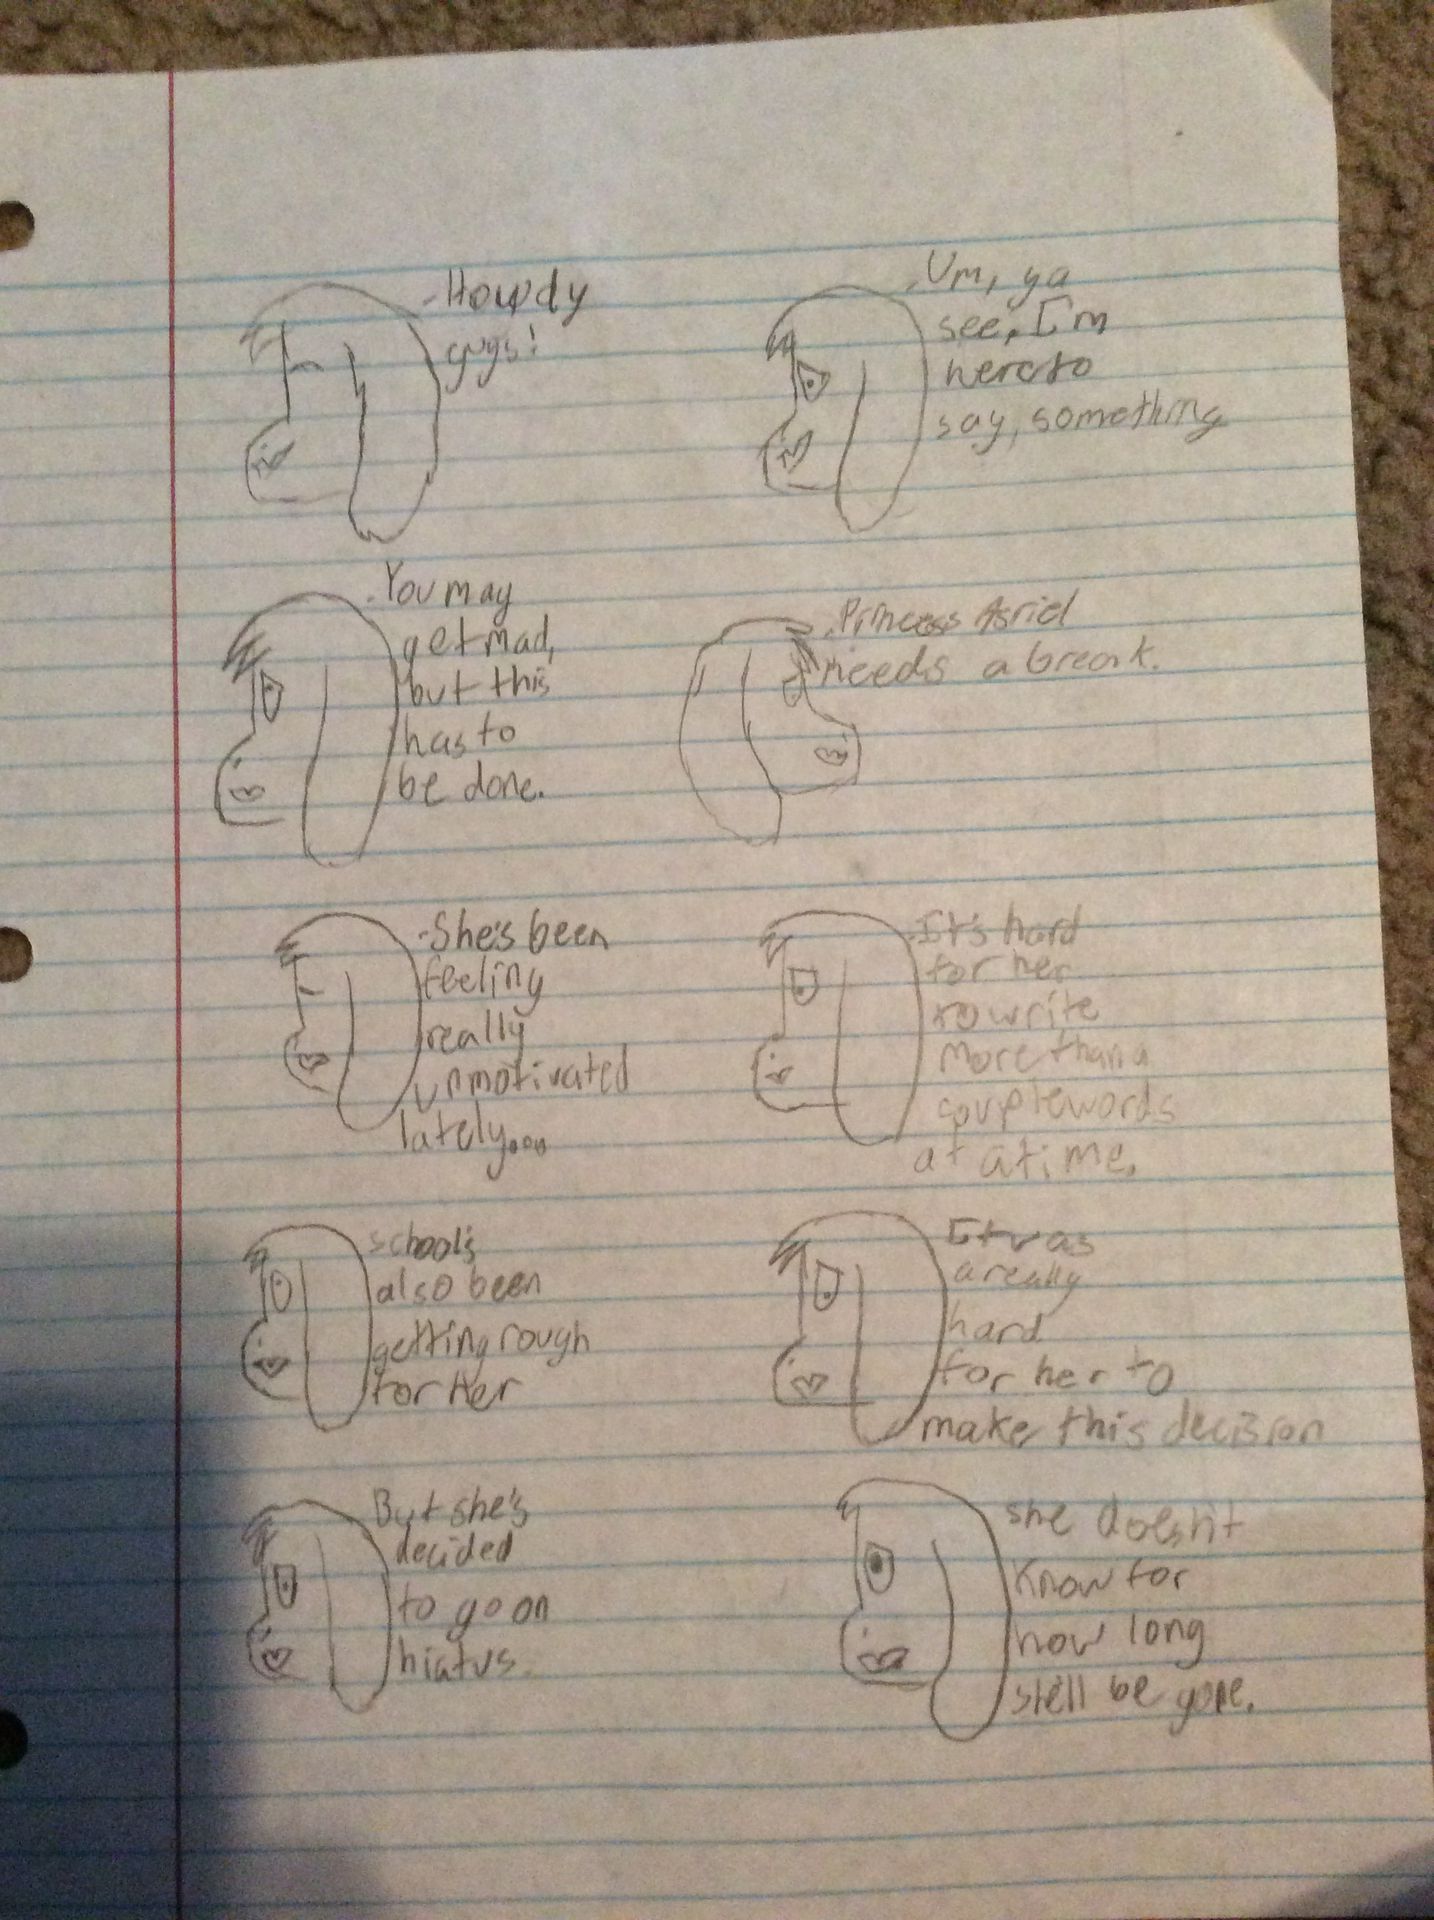 -Howdy
guys!
-Um, ya
see, I'm
here to
say, something
-You may
get mad,
but this
has to
be done.
-Princess Asriel
needs a break.
-She's been
feeling
really
unmotivated
lately...
-It's hard
for her
to write
more than a
couple words
at a time.
school's
also been
getting rough
for Her
It was
a really
hard
for her to
make this decision
But she's
decided
to go on
hiatus.
she doesn't
know for
how long
she'll be gone.